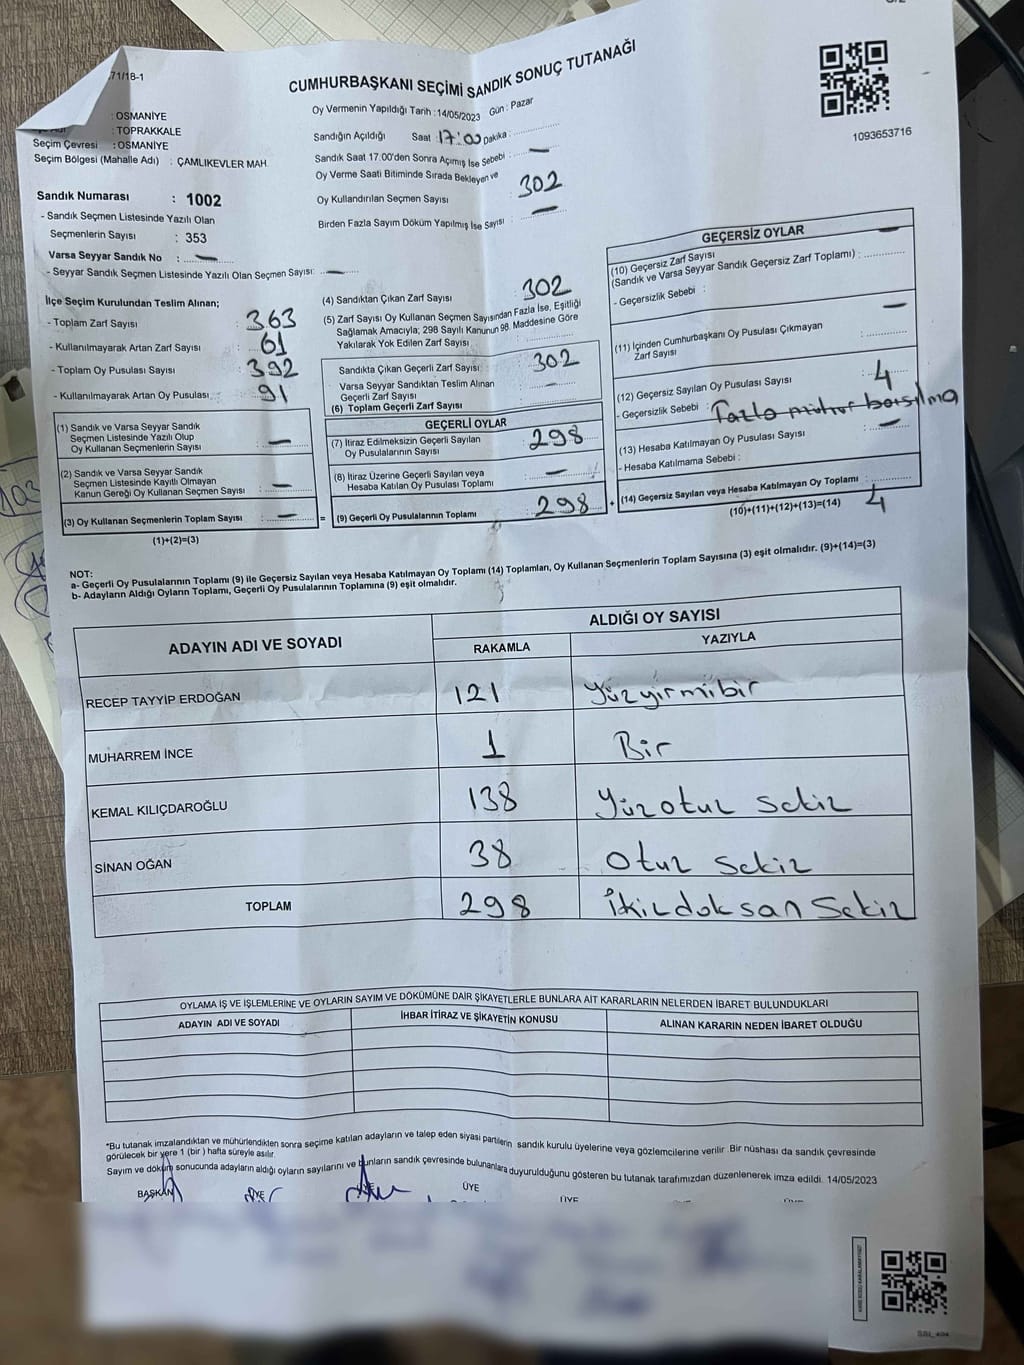 71/18-1
CUMHURBAŞKANI SEÇİMİ SANDIK SONUÇ TUTANAĞI
1093653716
: OSMANİYE
: TOPRAKKALE
Seçim Çevresi : OSMANİYE
Seçim Bölgesi (Mahalle Adı) : ÇAMLIKEVLER MAH.
Sandık Numarası : 1002
- Sandık Seçmen Listesinde Yazılı Olan
Seçmenlerin Sayısı : 353
Varsa Seyyar Sandık No : —
- Seyyar Sandık Seçmen Listesinde Yazılı Olan Seçmen Sayısı: —
Oy Vermenin Yapıldığı Tarih : 14/05/2023 Gün : Pazar
Sandığın Açıldığı Saat : 17:00 Dakika :
Sandık Saat 17.00'den Sonra Açımış İse Sebebi : —
Oy Verme Saati Bitiminde Sırada Bekleyen ve
Oy Kullandırılan Seçmen Sayısı : 302
Birden Fazla Sayım Döküm Yapılmış İse Sayısı : —
İlçe Seçim Kurulundan Teslim Alınan;
- Toplam Zarf Sayısı : 363
- Kullanılmayarak Artan Zarf Sayısı : 61
- Toplam Oy Pusulası Sayısı : 392
- Kullanılmayarak Artan Oy Pusulası : 91
(1) Sandık ve Varsa Seyyar Sandık
Seçmen Listesinde Yazılı Olup
Oy Kullanan Seçmenlerin Sayısı : —
(2) Sandık ve Varsa Seyyar Sandık
Seçmen Listesinde Kayıtlı Olmayan
Kanun Gereği Oy Kullanan Seçmen Sayısı : —
(3) Oy Kullanan Seçmenlerin Toplam Sayısı : — =
(1)+(2)=(3)
(4) Sandıktan Çıkan Zarf Sayısı : 302
(5) Zarf Sayısı Oy Kullanan Seçmen Sayısından Fazla İse, Eşitliği
Sağlamak Amacıyla; 298 Sayılı Kanunun 98. Maddesine Göre
Yakılarak Yok Edilen Zarf Sayısı
Sandıkta Çıkan Geçerli Zarf Sayısı : 302
Varsa Seyyar Sandıktan Teslim Alınan
Geçerli Zarf Sayısı : —
(6) Toplam Geçerli Zarf Sayısı
GEÇERLİ OYLAR
(7) İtiraz Edilmeksizin Geçerli Sayılan
Oy Pusulalarının Sayısı : 298
(8) İtiraz Üzerine Geçerli Sayılan veya
Hesaba Katılan Oy Pusulası Toplamı : —
(9) Geçerli Oy Pusulalarının Toplamı : 298 +
GEÇERSİZ OYLAR
(10) Geçersiz Zarf Sayısı
(Sandık ve Varsa Seyyar Sandık Geçersiz Zarf Toplamı) : —
- Geçersizlik Sebebi :
(11) İçinden Cumhurbaşkanı Oy Pusulası Çıkmayan
Zarf Sayısı : —
(12) Geçersiz Sayılan Oy Pusulası Sayısı : 4
- Geçersizlik Sebebi : Fazla mühür basılma
(13) Hesaba Katılmayan Oy Pusulası Sayısı : —
- Hesaba Katılmama Sebebi :
(14) Geçersiz Sayılan veya Hesaba Katılmayan Oy Toplamı : 4
(10)+(11)+(12)+(13)=(14)
NOT:
a- Geçerli Oy Pusulalarının Toplamı (9) ile Geçersiz Sayılan veya Hesaba Katılmayan Oy Toplamı (14) Toplamları, Oy Kullanan Seçmenlerin Toplam Sayısına (3) eşit olmalıdır. (9)+(14)=(3)
b- Adayların Aldığı Oyların Toplamı, Geçerli Oy Pusulalarının Toplamına (9) eşit olmalıdır.
ADAYIN ADI VE SOYADI ALDIĞI OY SAYISI
RAKAMLA YAZIYLA
RECEP TAYYİP ERDOĞAN 121 Yüzyirmibir
MUHARREM İNCE 1 Bir
KEMAL KILIÇDAROĞLU 138 Yüzotuz sekiz
SİNAN OĞAN 38 Otuz sekiz
TOPLAM 298 İkizdoksan Sekiz
OYLAMA İŞ VE İŞLEMLERİNE VE OYLARIN SAYIM VE DÖKÜMÜNE DAİR ŞİKAYETLERLE BUNLARA AİT KARARLARIN NELERDEN İBARET BULUNDUKLARI
ADAYIN ADI VE SOYADI İHBAR İTİRAZ VE ŞİKAYETİN KONUSU ALINAN KARARIN NEDEN İBARET OLDUĞU
*Bu tutanak imzalandıktan ve mühürlendikten sonra seçime katılan adayların ve talep eden siyasi partilerin sandık kurulu üyelerine veya gözlemcilerine verilir. Bir nüshası da sandık çevresinde
görülecek bir yere 1 (bir ) hafta süreyle asılır.
Sayım ve döküm sonucunda adayların aldığı oyların sayılarını ve bunların sandık çevresinde bulunanlara duyurulduğunu gösteren bu tutanak tarafımızdan düzenlenerek imza edildi. 14/05/2023
BAŞKAN ÜYE ÜYE ÜYE ÜYE